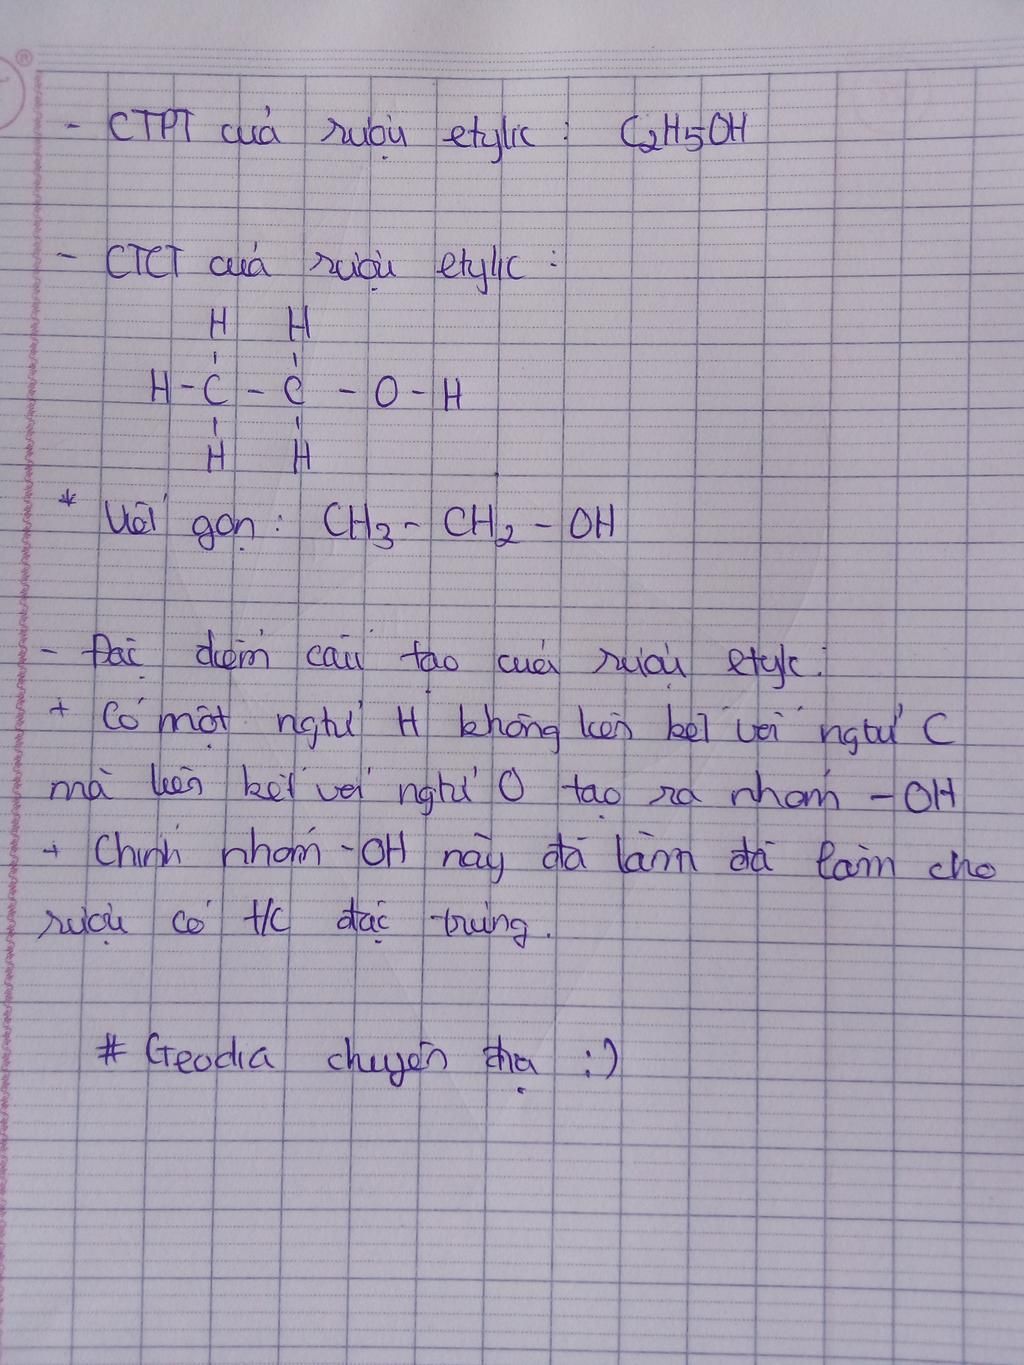 - CTPT của rượu etylic : C2H5OH
- CTCT của rượu etylic :
H H
H - C - C - O - H
H H
* Viết gọn : CH3 - CH2 - OH
- Đặc điểm cấu tạo của rượu etylic :
+ Có một ngtử H không liên kết với ngtử C
mà liên kết với ngtử O tạo ra nhóm - OH
+ Chính nhóm - OH này đã làm đã làm cho
rượu có t/c đặc trưng.
# Geodia chuyên :)